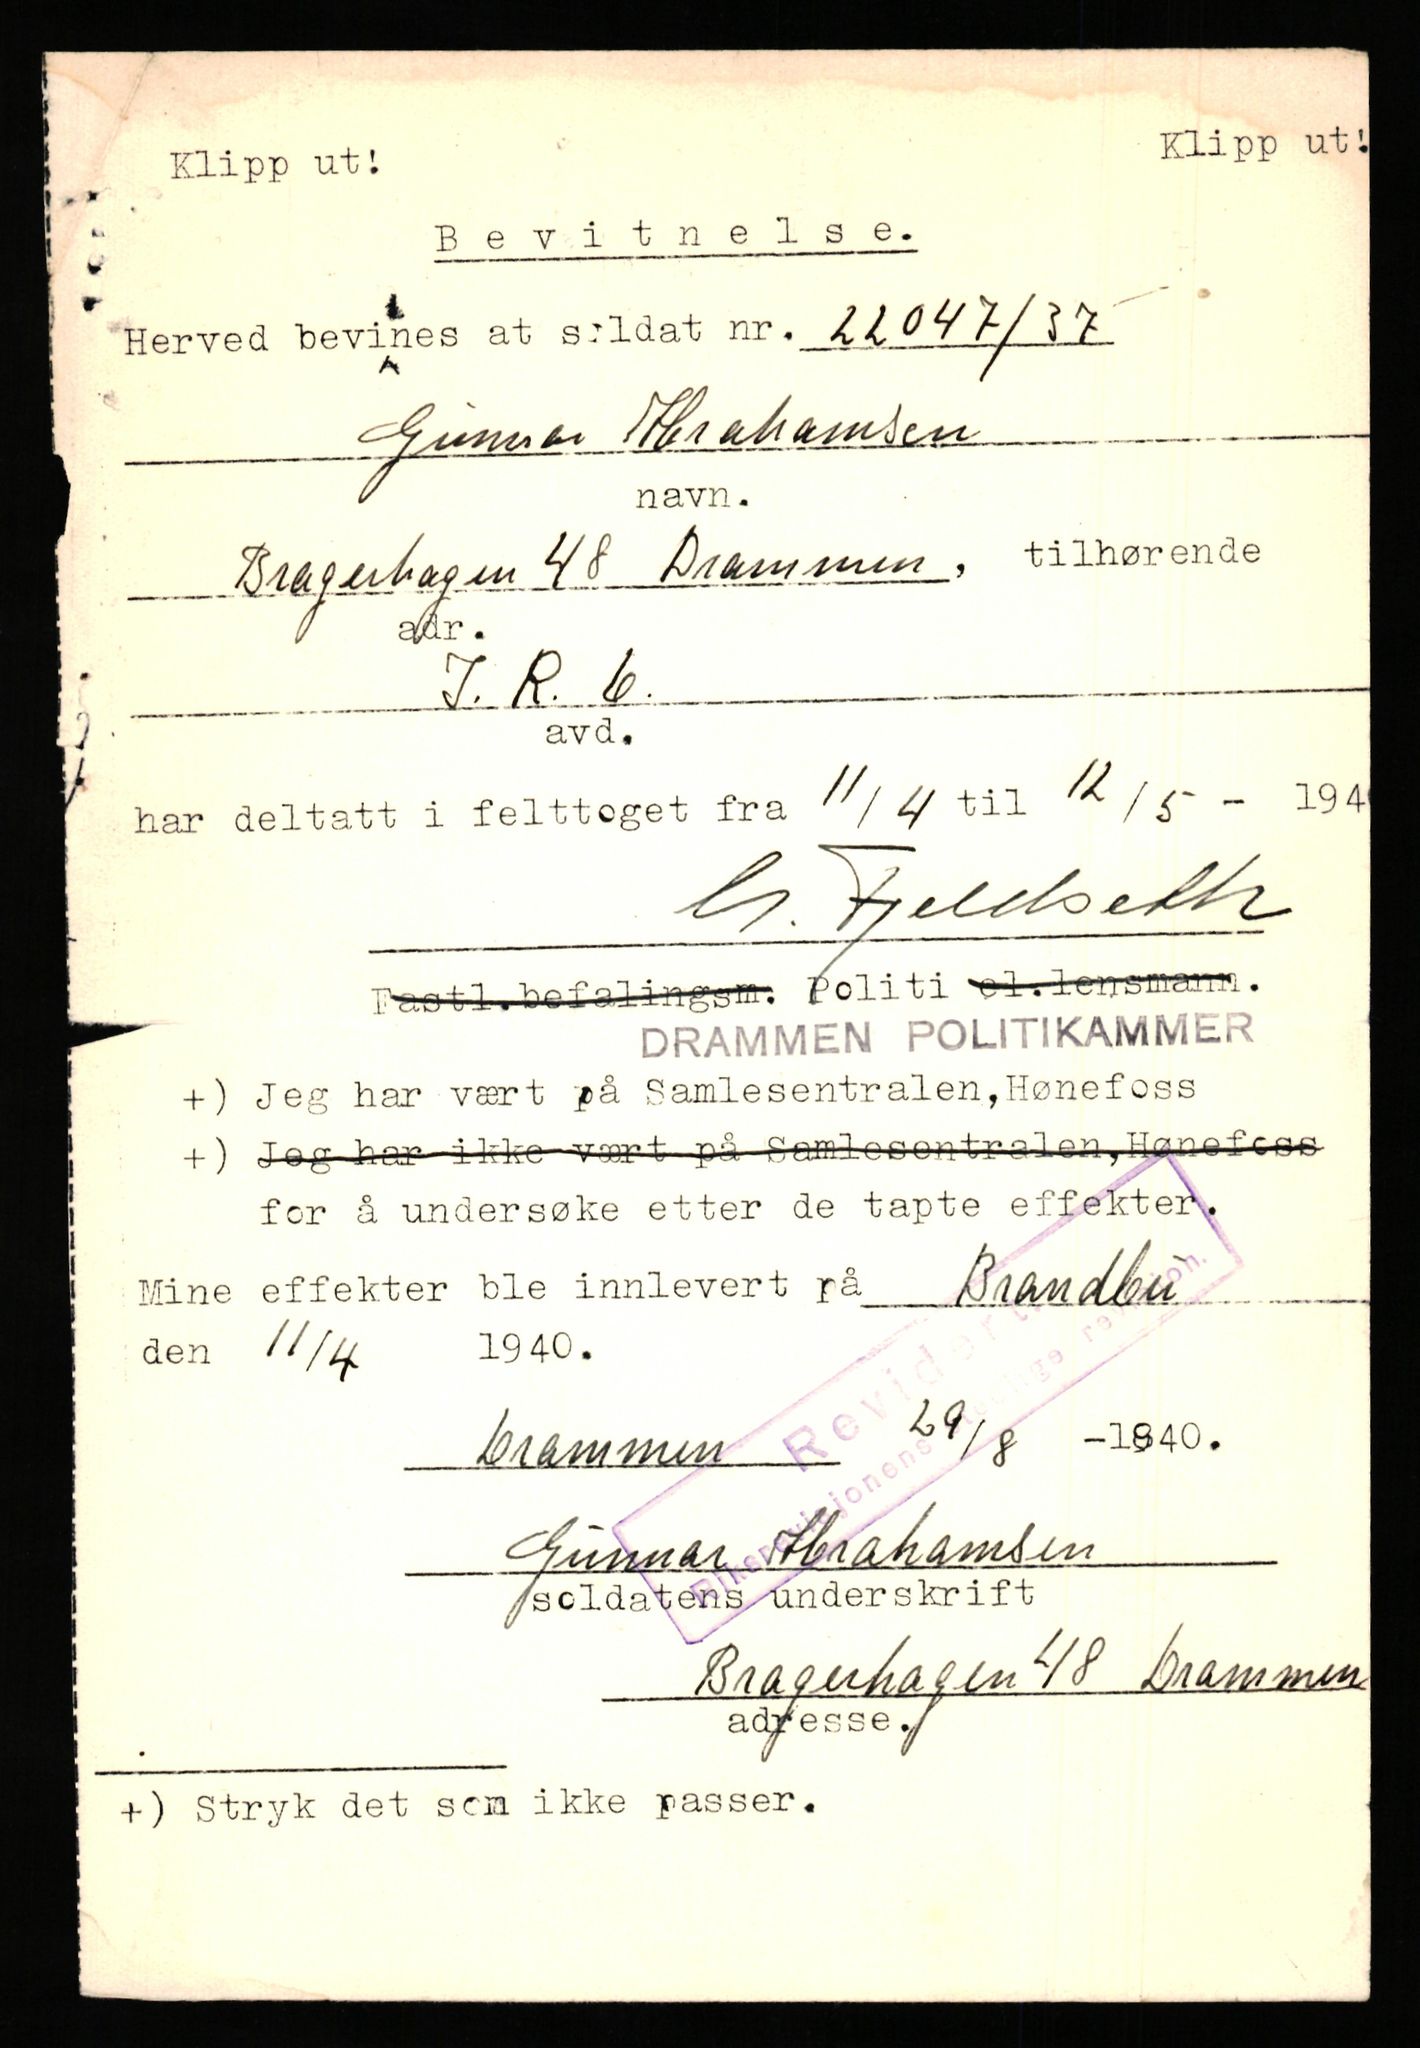 Klipp ut! Klipp ut!
Bevitnelse.
Herved bevitnes at soldat nr. 22047/37
Gunnar Abrahamsen
navn.
Bragerhagen 48 Drammen, tilhørende
adr.
I. R. 6.
avd.
har deltatt i felttoget fra 11/4 til 12/5 - 194
Fjeldseth
Fastl.befalingsm. Politi el.lensmann.
DRAMMEN POLITIKAMMER
+) Jeg har vært på Samlesentralen,Hønefoss
+) Jeg har ikke vært på Samlesentralen,Hønefoss
for å undersøke etter de tapte effekter.
Mine effekter ble innlevert på Brandbu
den 11/4 1940.
Drammen 29/8 -1940.
Revidert
Riksrevisjonens revisjon.
Gunnar Abrahamsen
soldatens underskrift
Bragerhagen 48 Drammen
adresse.
+) Stryk det som ikke passer.